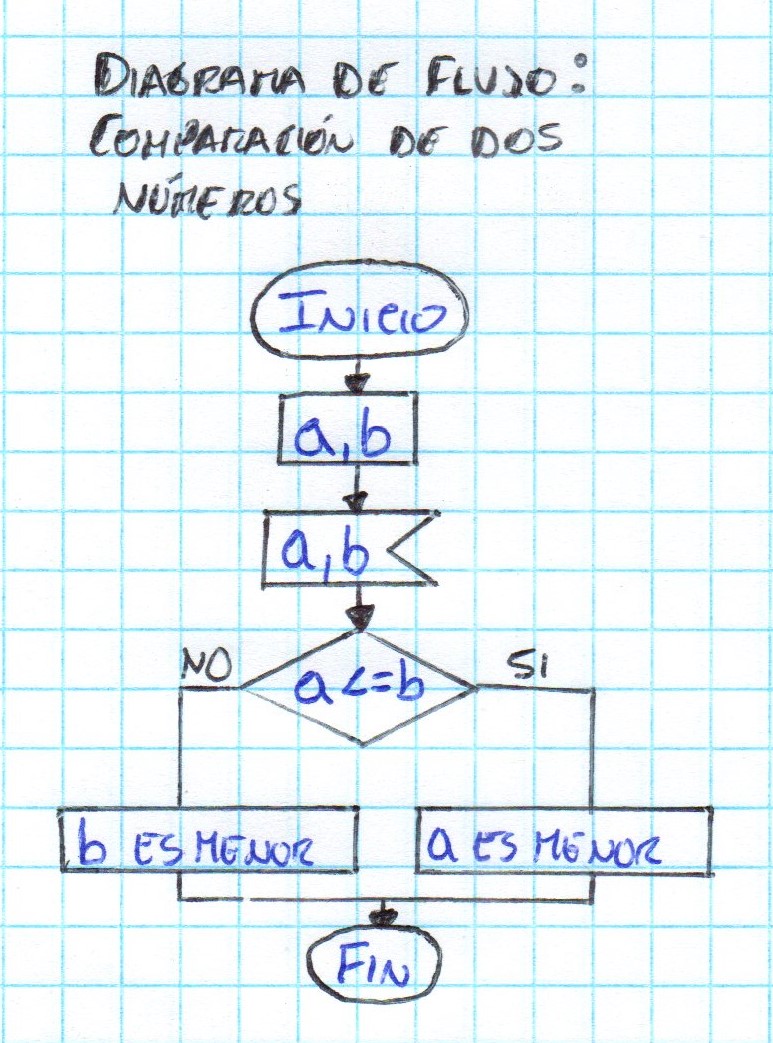 DIAGRAMA DE FLUJO:
COMPARACIÓN DE DOS
NÚMEROS
INICIO
a,b
a,b
a<=b
NO
SI
b ES MENOR
a ES MENOR
FIN